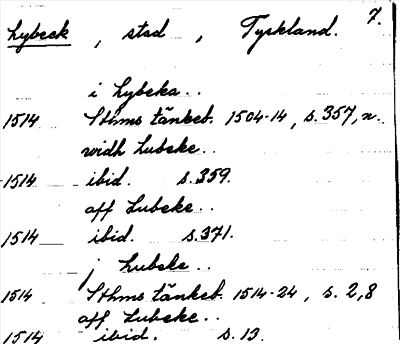 7.
Lybeck, stad, Tyskland.
i Lybeka..
1514 Sthms tänkeb. 1504-14, s.357, n.
widh Lubeke..
1514 ibid. s.359.
aff Lubeke..
1514 ibid. s.371.
j Lubeke..
1514 Sthms tänkeb. 1514-24, s. 2,8
aff Lubeke..
1514 ibid. s.13.